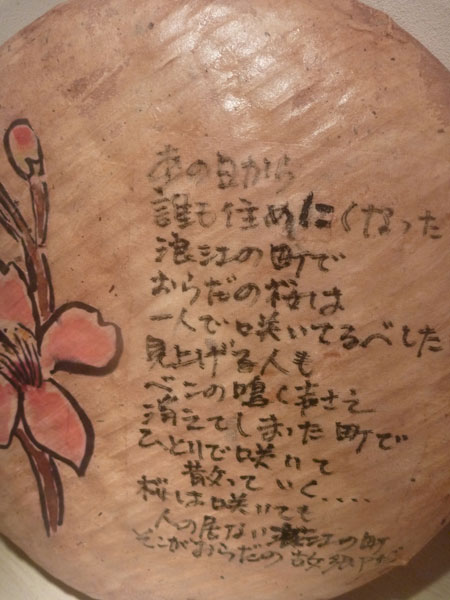 あの日から
誰も住めにくなった
浪江の町で
おらだの桜は
一人で咲いてるべした
見上げる人も
べこの鳴く声さえ
消えてしまった町で
ひとりで咲いて
散っていく....
桜は咲いても
人の居ない浪江の町
そこがおらだの故郷